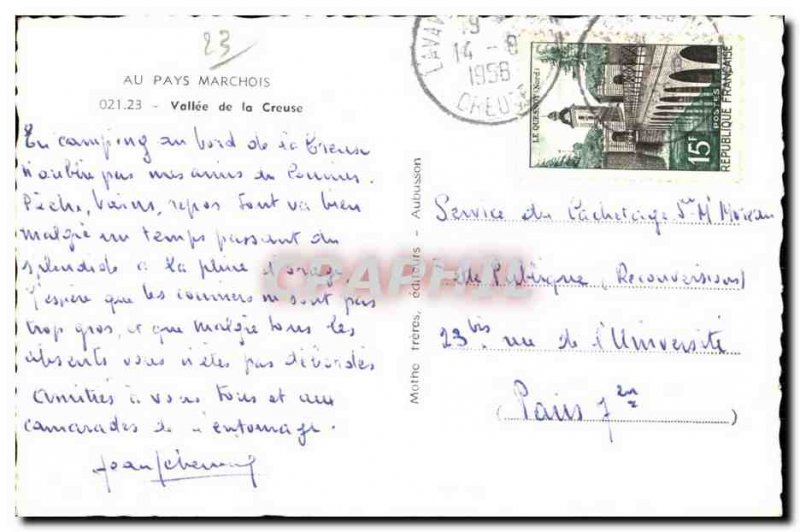 23
AU PAYS MARCHOIS
021.23 - Vallée de la Creuse
En camping au bord de la Creuse
n'oublie pas mes amis du Courrier.
Pêche, bains, repos tout va bien
malgré un temps passant du
splendide à la pluie d'orage
J'espère que les courriers ne sont pas
trop gros, et que malgré tous les
absents vous n'êtes pas débordés
Amitiés à vous tous et aux
camarades de l'entourage.
Mothe frères, éditeurs - Aubusson
14 - 8
1958
CREUSE
LE QUESNOY (Nord)
15F
POSTES
RÉPUBLIQUE FRANÇAISE
Service du Cachetage Mr Moreau
(Reconversions)
23bis rue de l'Université
(Paris 7
CPAPHIL